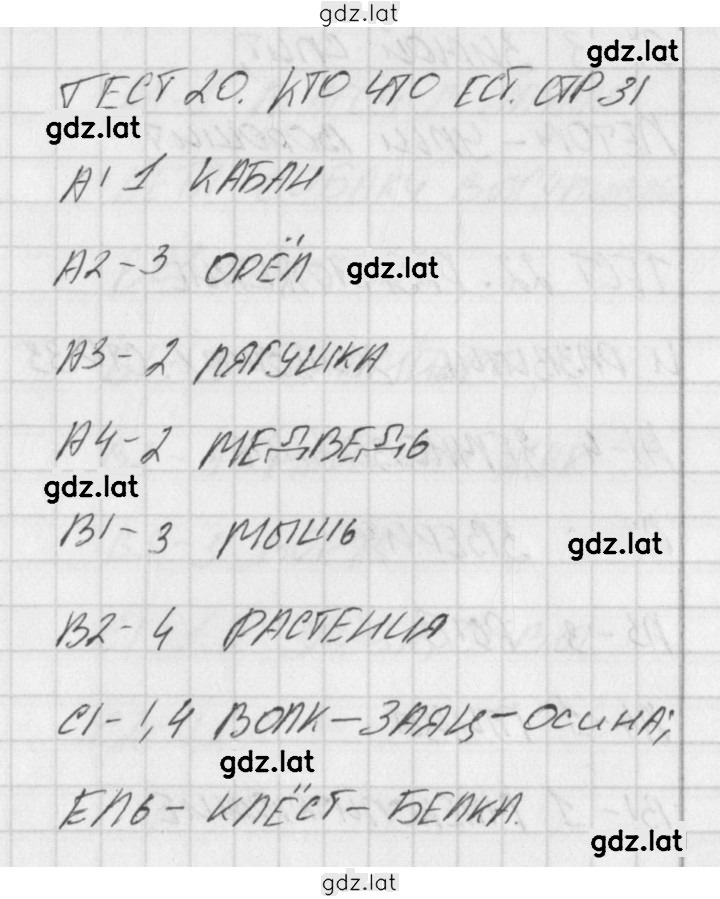 gdz.lat
gdz.lat
ТЕСТ 20. КТО ЧТО ЕСТ. СТР 31
gdz.lat
А1 1 КАБАН
А2-3 ОРЁЛ gdz.lat
А3-2 ЛЯГУШКА
А4-2 МЕДВЕДЬ
gdz.lat
В1-3 МЫШЬ
gdz.lat
В2-4 РАСТЕНИЯ
С1-1,4 ВОЛК-ЗАЯЦ-ОСИНА;
gdz.lat
ЕЛЬ-КЛЁСТ-БЕЛКА.
gdz.lat
gdz.lat